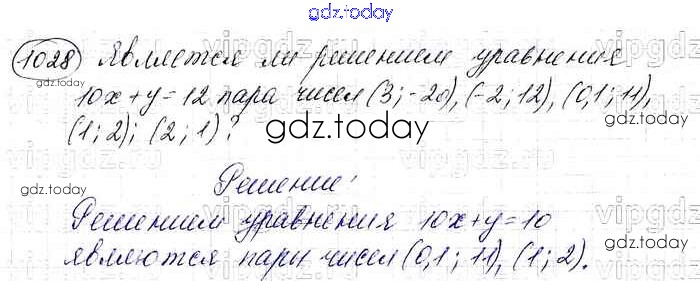 gdz.today
1028 Является ли решением уравнения
10x+y=12 пара чисел (3;-20), (-2;12), (0,1;11),
(1;2); (2;1)?
gdz.today
gdz.today
gdz.today
Решение:
Решением уравнения 10x+y=10
gdz.today
являются пары чисел (0,1;11), (1;2).